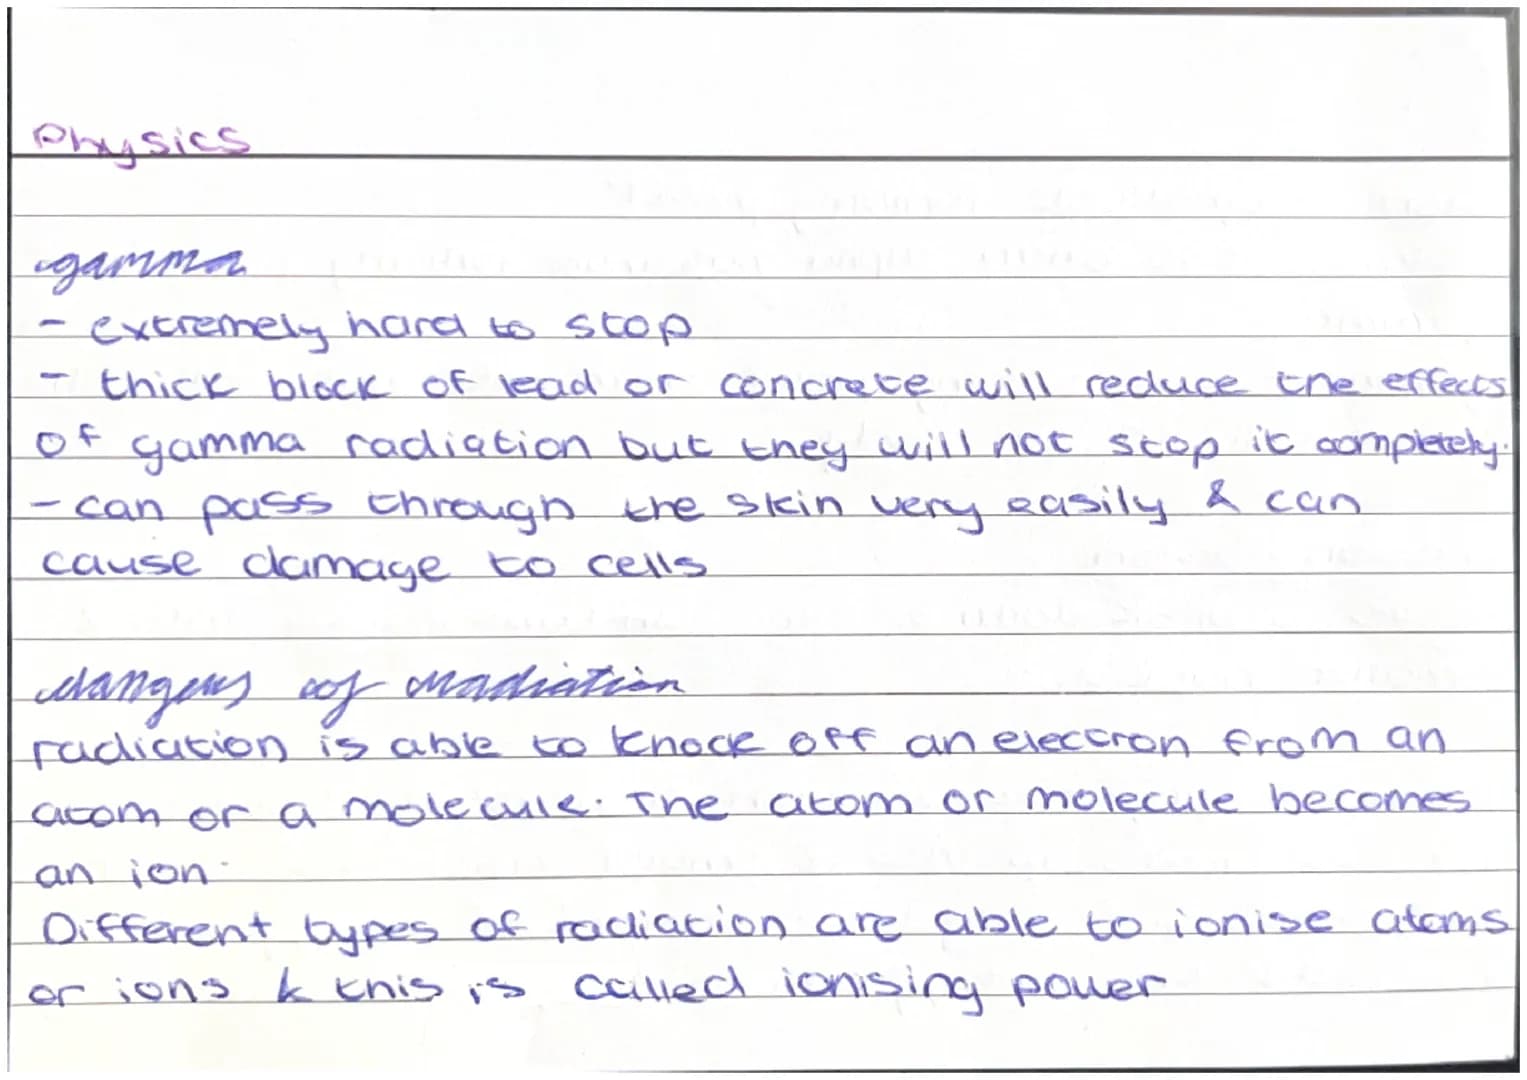 Physics
gamma
- extremely hard to stop
- thick block of lead or concrete will reduce the effects
of gamma radiation but they will not stop it completely.
- can pass through the skin very easily & can
cause damage to cells
dangers of radiation
radiation is able to knock off an electron from an
atom or a molecule. The atom or molecule becomes
an ion.
Different types of radiation are able to ionise atoms
or ions & this is called ionising power